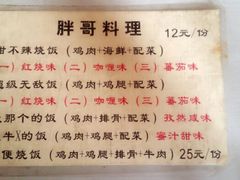 胖哥料理
12元/份
甜不辣烧饭（鸡肉+海鲜+配菜）
一）红烧味（二）咖喱味（三）蕃茄味
超级无敌饭（鸡肉+鸡腿+配菜）
一）红烧味（二）咖喱味（三）蕃茄味
那个的饭（鸡肉+排骨+配菜）孜然咸味
牛）的饭（鸡肉+鸡腿+配菜）蜜汁甜味
便烧饭（鸡肉+鸡腿+排骨+牛肉）25元/份